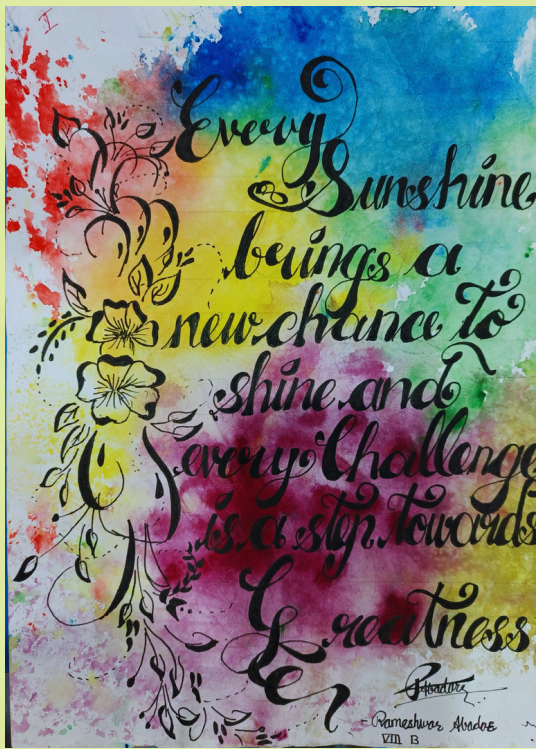 I
Every
Sunshine
brings a
new chance to
shine and
every Challenge
is a step towards
Greatness
- Rameshwar Abadar
VIII B